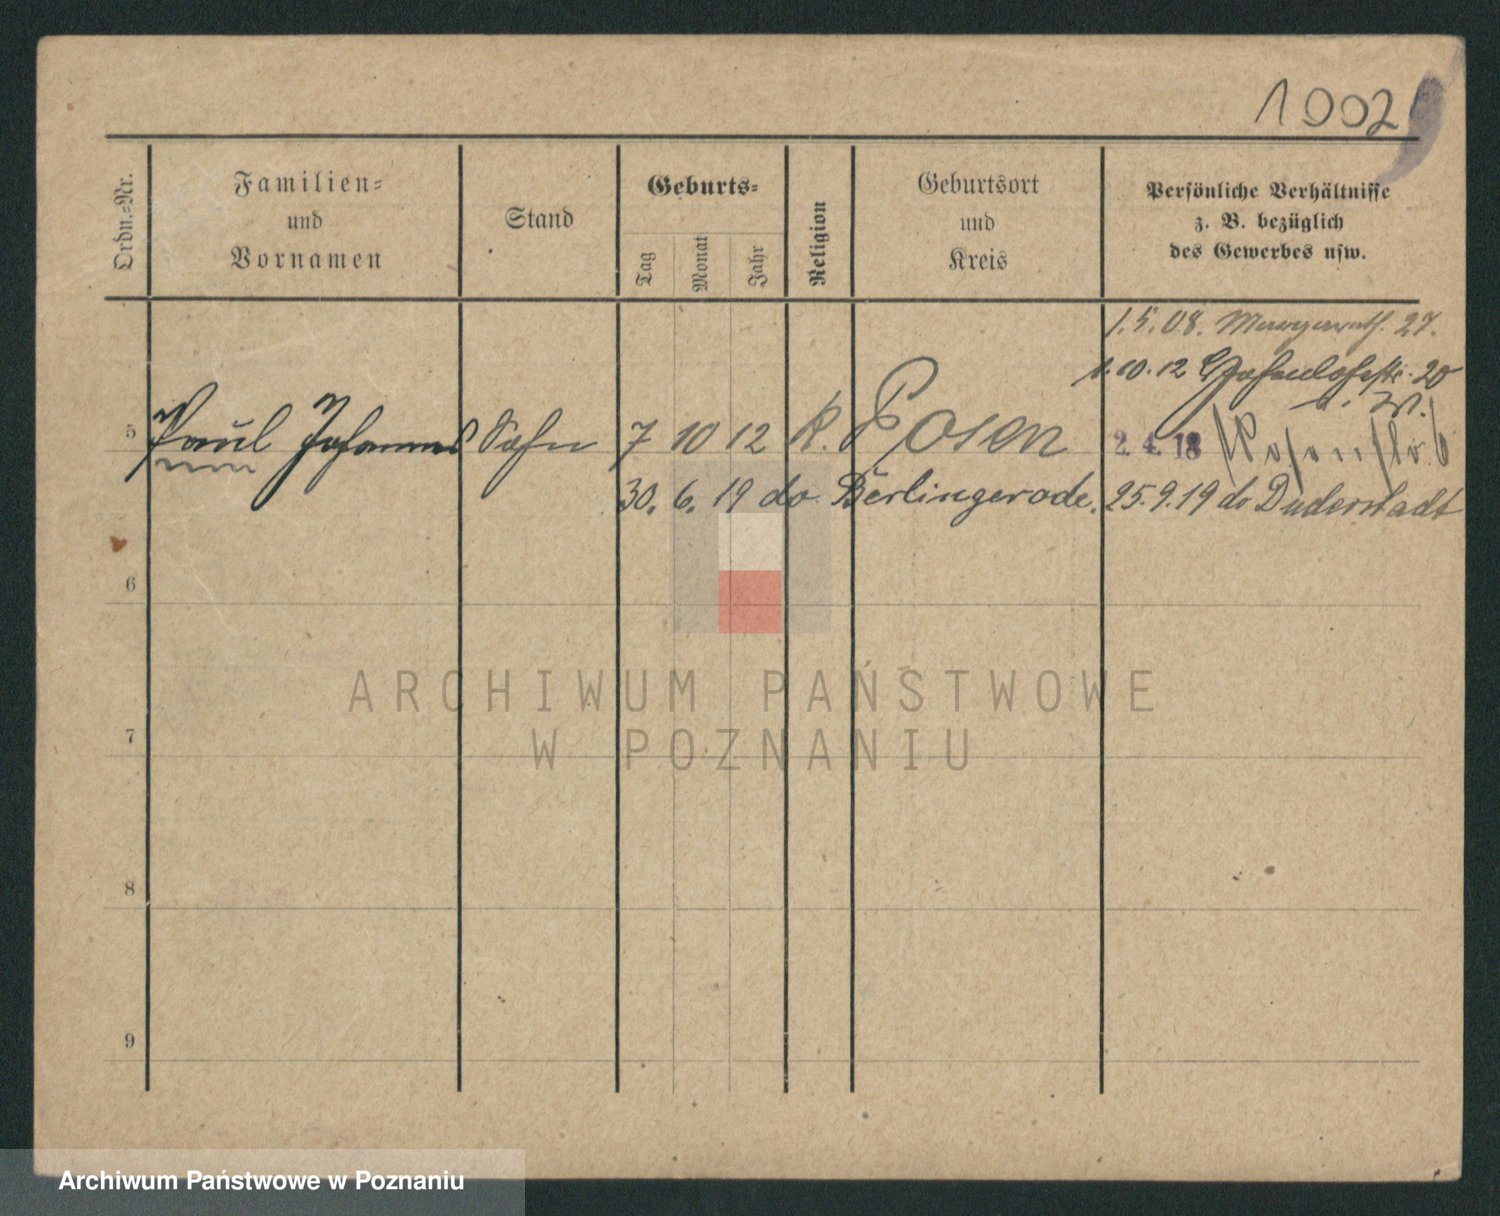 1002
Ordn.=Nr.
Familien=
und
Vornamen
Stand
Geburts=
Tag
Monat
Jahr
Religion
Geburtsort
und
Kreis
Persönliche Verhältnisse
z. B. bezüglich
des Gewerbes usw.
1.5.08. 27.
1.10.12 20
5 Paul Johannes Sohn 7 10 12 k. Posen 2. 4. 18
30. 6. 19 do Berlingerode. 25.9.19 do Duderstadt
6
ARCHIWUM PAŃSTWOWE
W POZNANIU
7
8
9
Archiwum Państwowe w Poznaniu